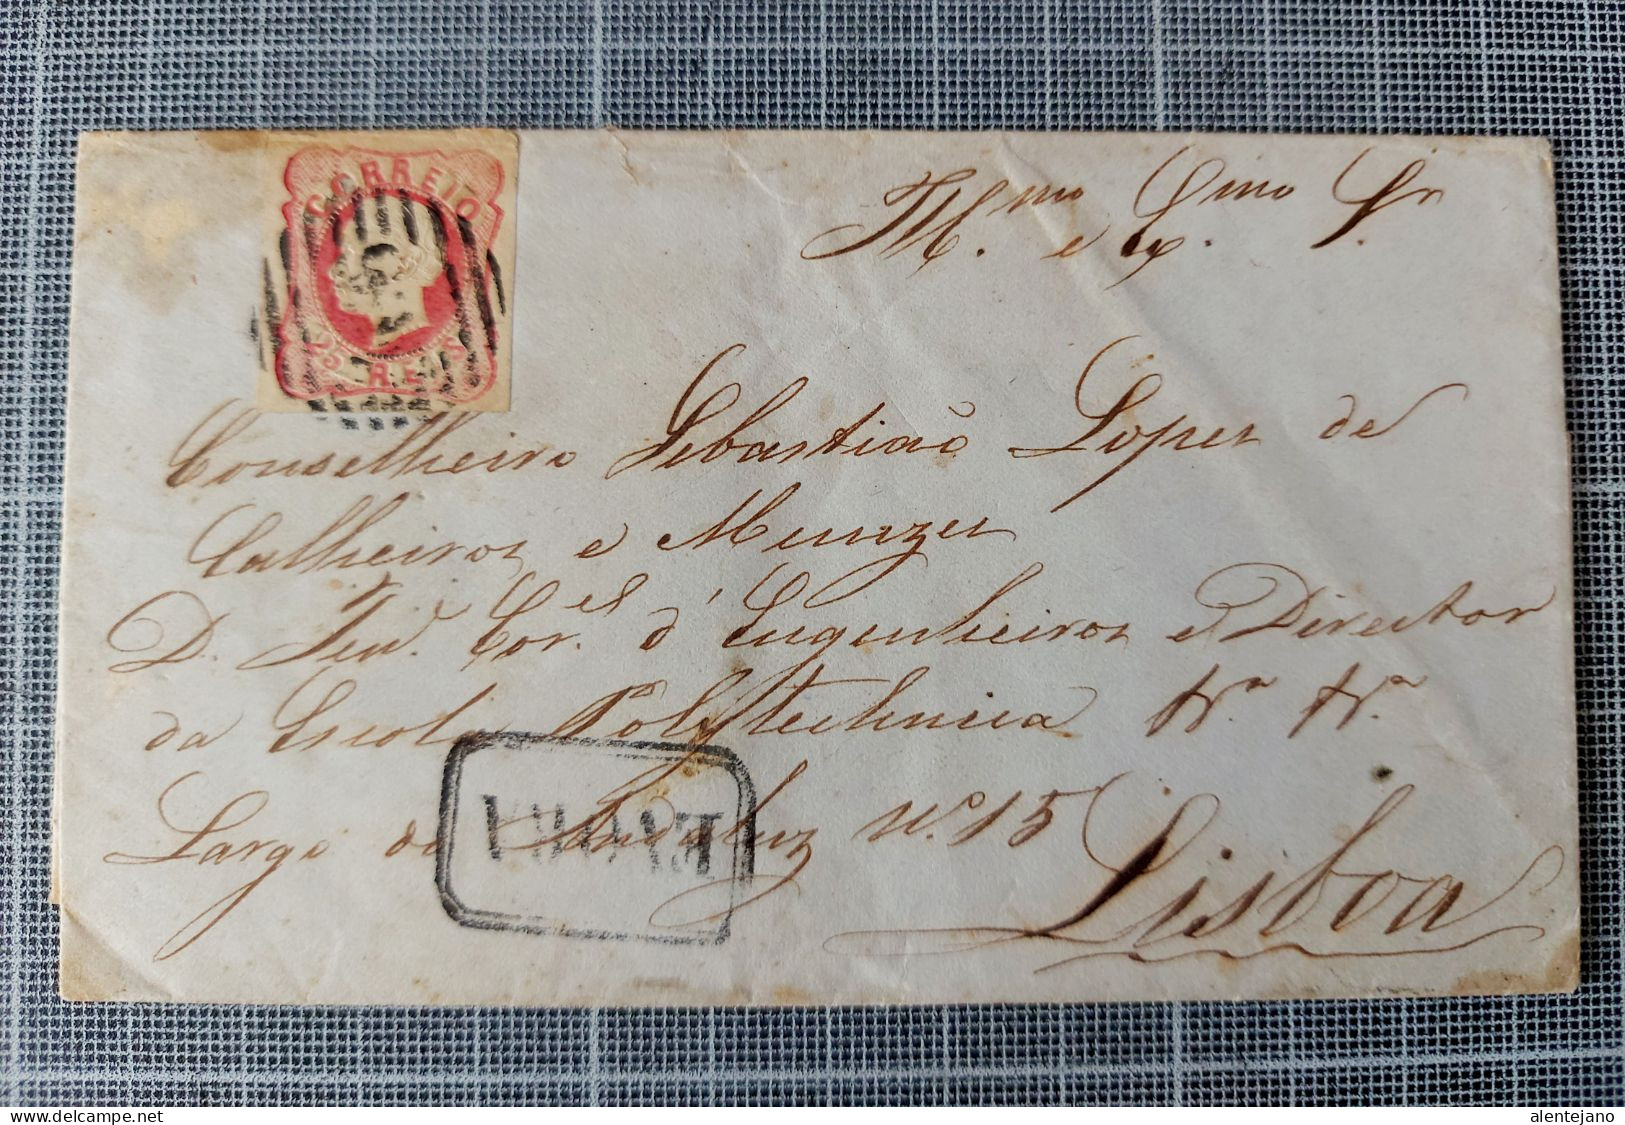 CORREIO
25 REIS
Ill.mo e Ex.mo Sr
Conselheiro Sebastião Lopes de
Calheiros e Menezes
D. Ten.e Cor.el d'Engenheiros e Director
da Escola Polytechnica
Largo do Andaluz N.o 15
Lisboa
delcampe.net
alentejano